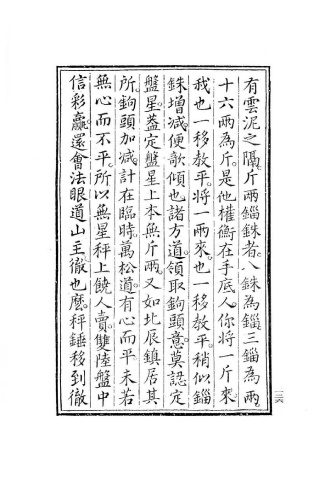 有雲泥之隔斤兩錙銖者八銖為錙三錙為兩
十六兩為斤是他權衡在手底人你將一斤來
我也一移教平將一兩來也一移教平稍似錙
銖增減便欹傾也諸方道領取鉤頭意莫認定
盤星蓋定盤星上本無斤兩又如北辰鎮居其
所鉤頭加減計在臨時萬松道有心而平未若
無心而不平所以無星秤上饒人賣雙陸盤中
信彩贏還會法眼道山主徹也麼秤錘移到徹